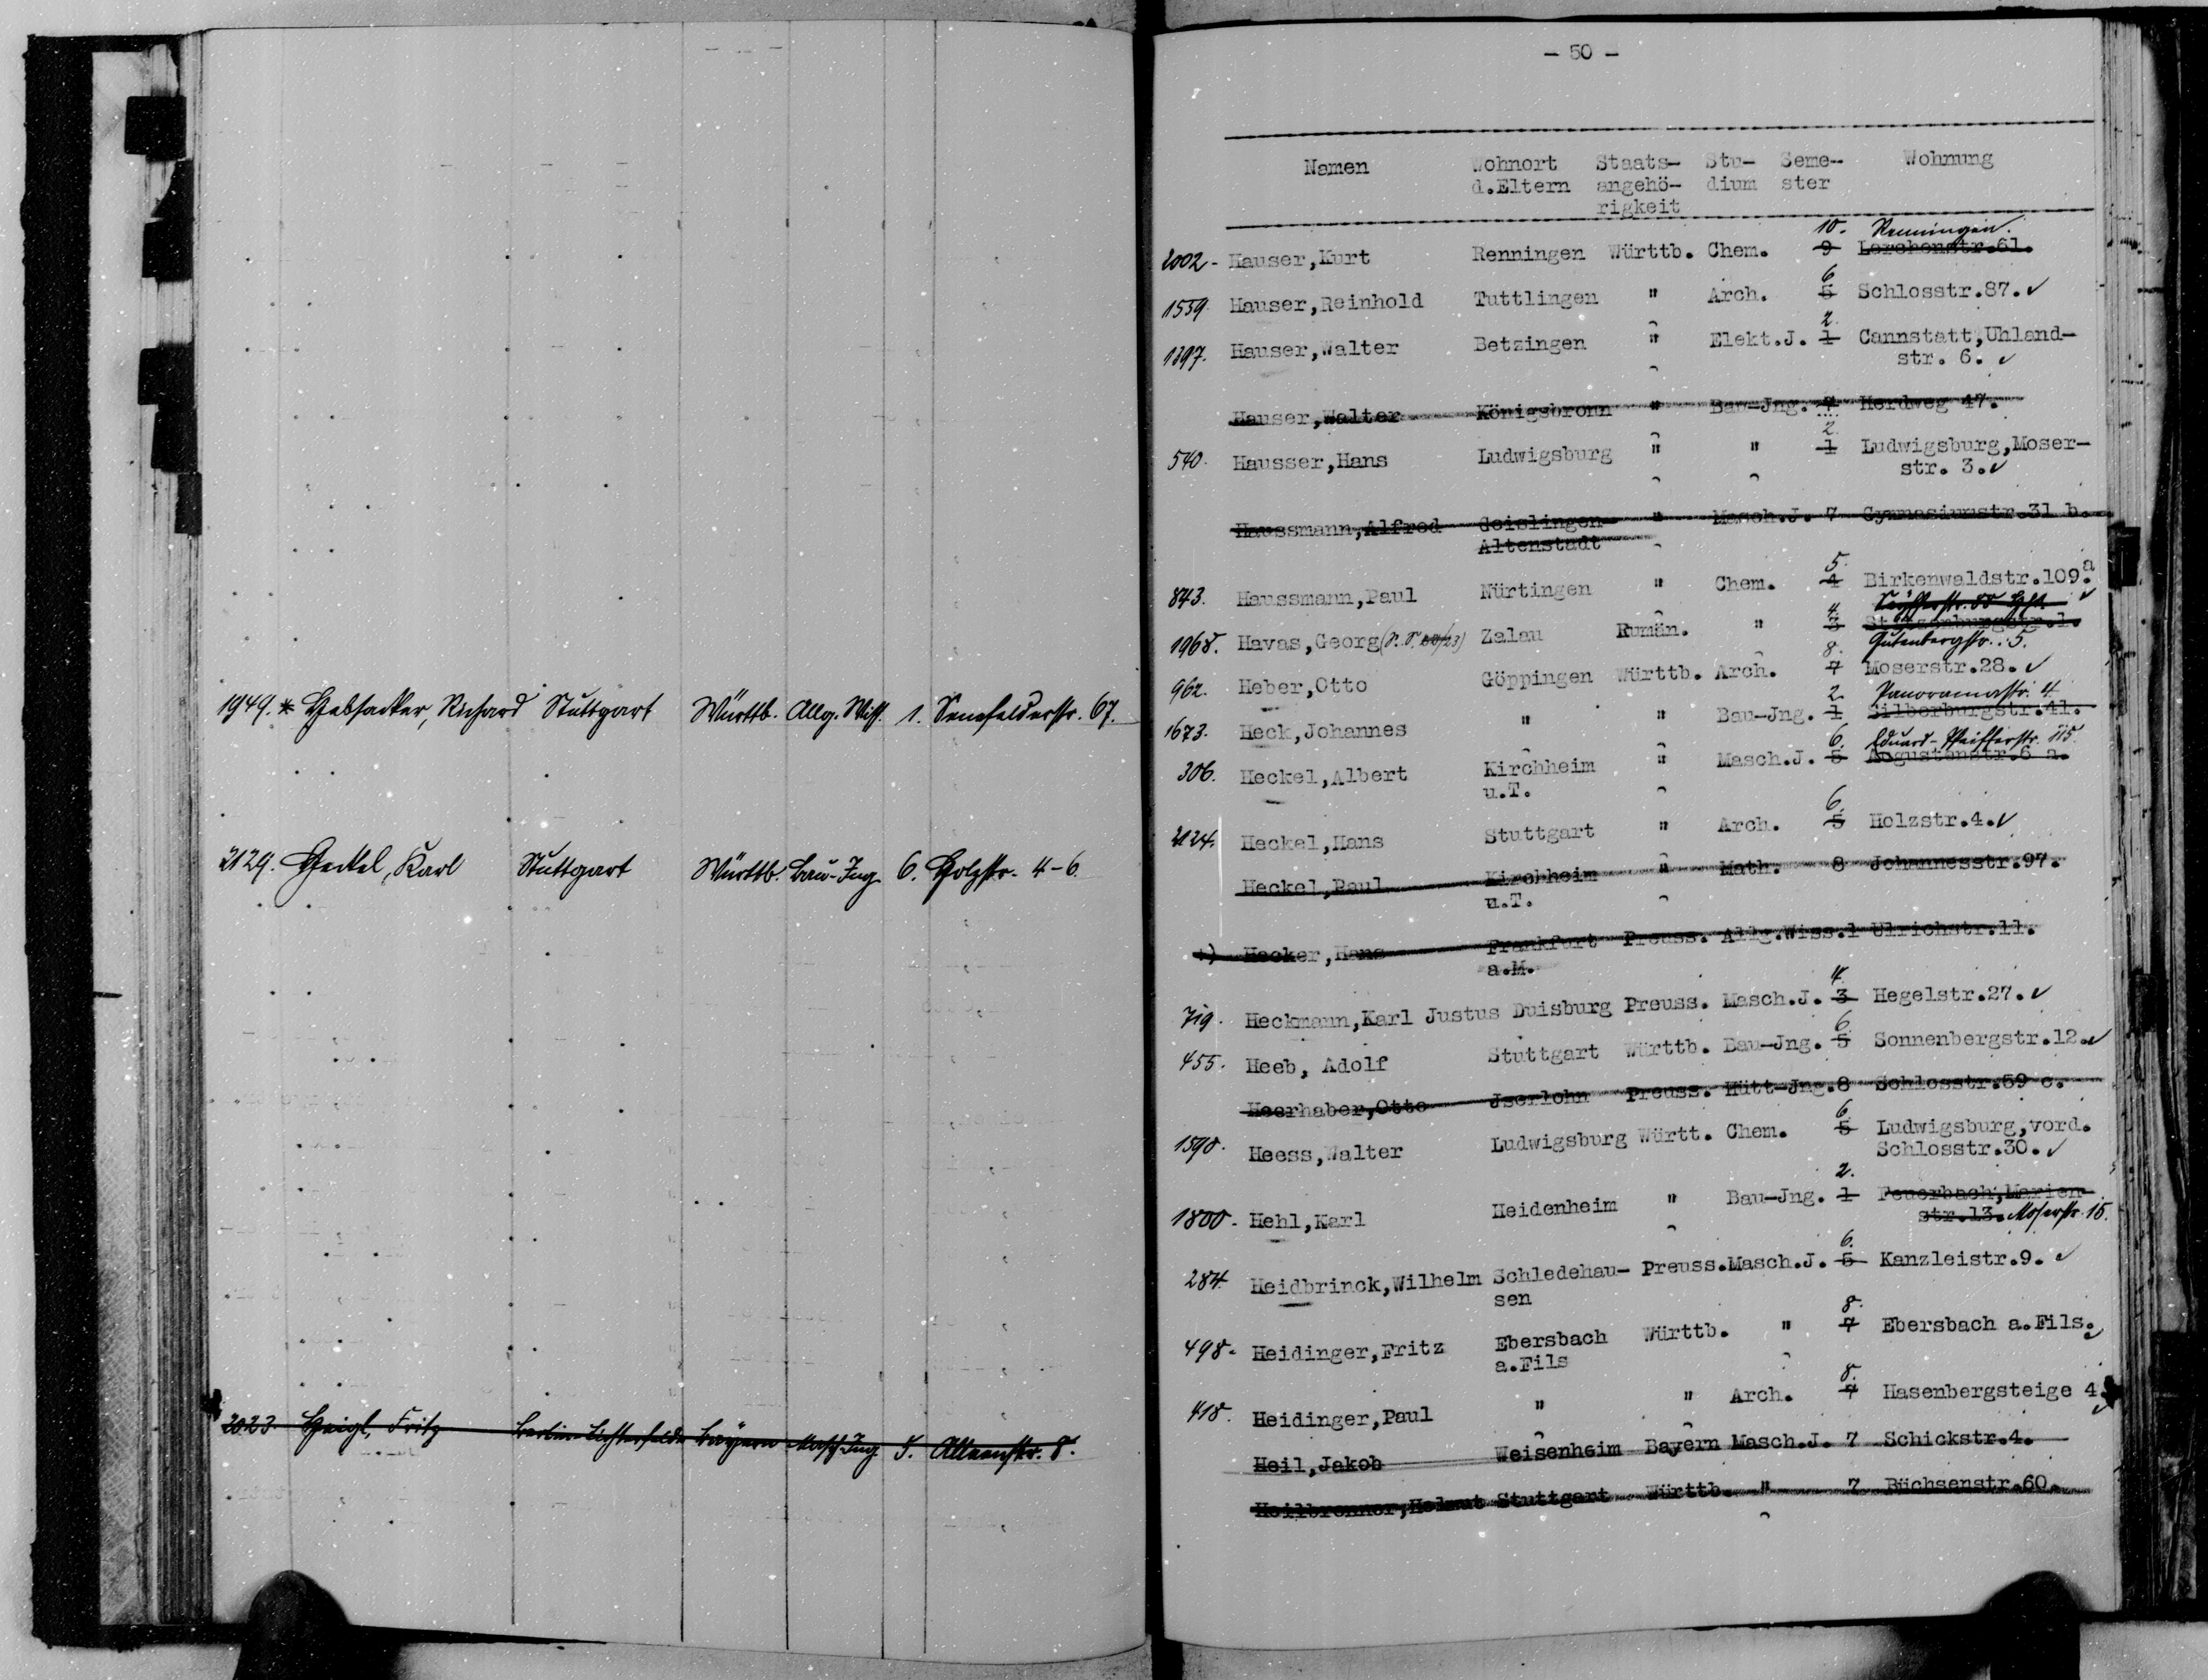 1949. * Hebsacker, Richard Stuttgart Württb. Allg. Wiss. 1. Senefelderstr. 67.
2129. Heckel, Karl Stuttgart Württb. Bau-Ing. 6. Holzstr. 4-6.
2023. Heigl, Fritz Berlin-Lichterfelde Bayern Masch-Ing. 5.
- 50 -
Namen Wohnort Staats- Stu- Seme- Wohnung
d.Eltern angehö- dium ster
rigkeit
10. Renningen.
2002- Hauser,Kurt Renningen Württb. Chem. 9 Lerchenstr.61.
6
1559. Hauser,Reinhold Tuttlingen " Arch. 5 Schlosstr.87. ✓
2.
1897. Hauser,Walter Betzingen " Elekt.J. 1 Cannstatt,Uhland-
str. 6. ✓
Hauser,Walter Königsbronn " Bau-Jng. 7 Herdweg 47.
2.
540. Hausser,Hans Ludwigsburg " " 1 Ludwigsburg,Moser-
str. 3. ✓
Haussmann,Alfred Geislingen " Masch.J. 7 Gymnasiumstr.31 b.
Altenstadt
5.
843. Haussmann,Paul Nürtingen " Chem. 4 Birkenwaldstr.109.a ✓
4.
1968. Havas,Georg Zalau Rumän. " 3
8. Gutenbergstr. 5.
962. Heber,Otto Göppingen Württb. Arch. 7 Moserstr.28. ✓
2. Panoramastr. 4.
1673. Heck,Johannes " " Bau-Jng. 1 Silberburgstr.41.
6. Eduard-Pfeifferstr. 115.
306. Heckel,Albert Kirchheim " Masch.J. 5 Augustenstr.6 a.
u.T.
6.
2124. Heckel,Hans Stuttgart " Arch. 5 Holzstr.4. ✓
Heckel,Paul Kirchheim " Math. 8 Johannesstr.97.
u.T.
+) Hecker,Hans Frankfurt Preuss. Allg.Wiss.1 Ulrichstr.11.
a.M.
4.
719. Heckmann,Karl Justus Duisburg Preuss. Masch.J. 3 Hegelstr.27. ✓
6.
455. Heeb, Adolf Stuttgart Württb. Bau-Jng. 5 Sonnenbergstr.12. ✓
Heerhaber,Otto Jserlohn Preuss. Hütt-Jng.8 Schlosstr.59 c.
6.
1590. Heess,Walter Ludwigsburg Württ. Chem. 5 Ludwigsburg,vord.
Schlosstr.30. ✓
2.
1800- Hehl,Karl Heidenheim " Bau-Jng. 1 Feuerbach,Marien-
str.13. Moserstr. 15.
6.
284. Heidbrinck,Wilhelm Schledehau- Preuss.Masch.J. 5 Kanzleistr.9. ✓
sen
8.
498. Heidinger,Fritz Ebersbach Württb. " 7 Ebersbach a.Fils. ✓
a.Fils
8.
418. Heidinger,Paul " " Arch. 7 Hasenbergsteige 4
Heil,Jakob Weisenheim Bayern Masch.J. 7 Schickstr.4.
Heilbronner,Helmut Stuttgart Württb. " 7 Büchsenstr.60.